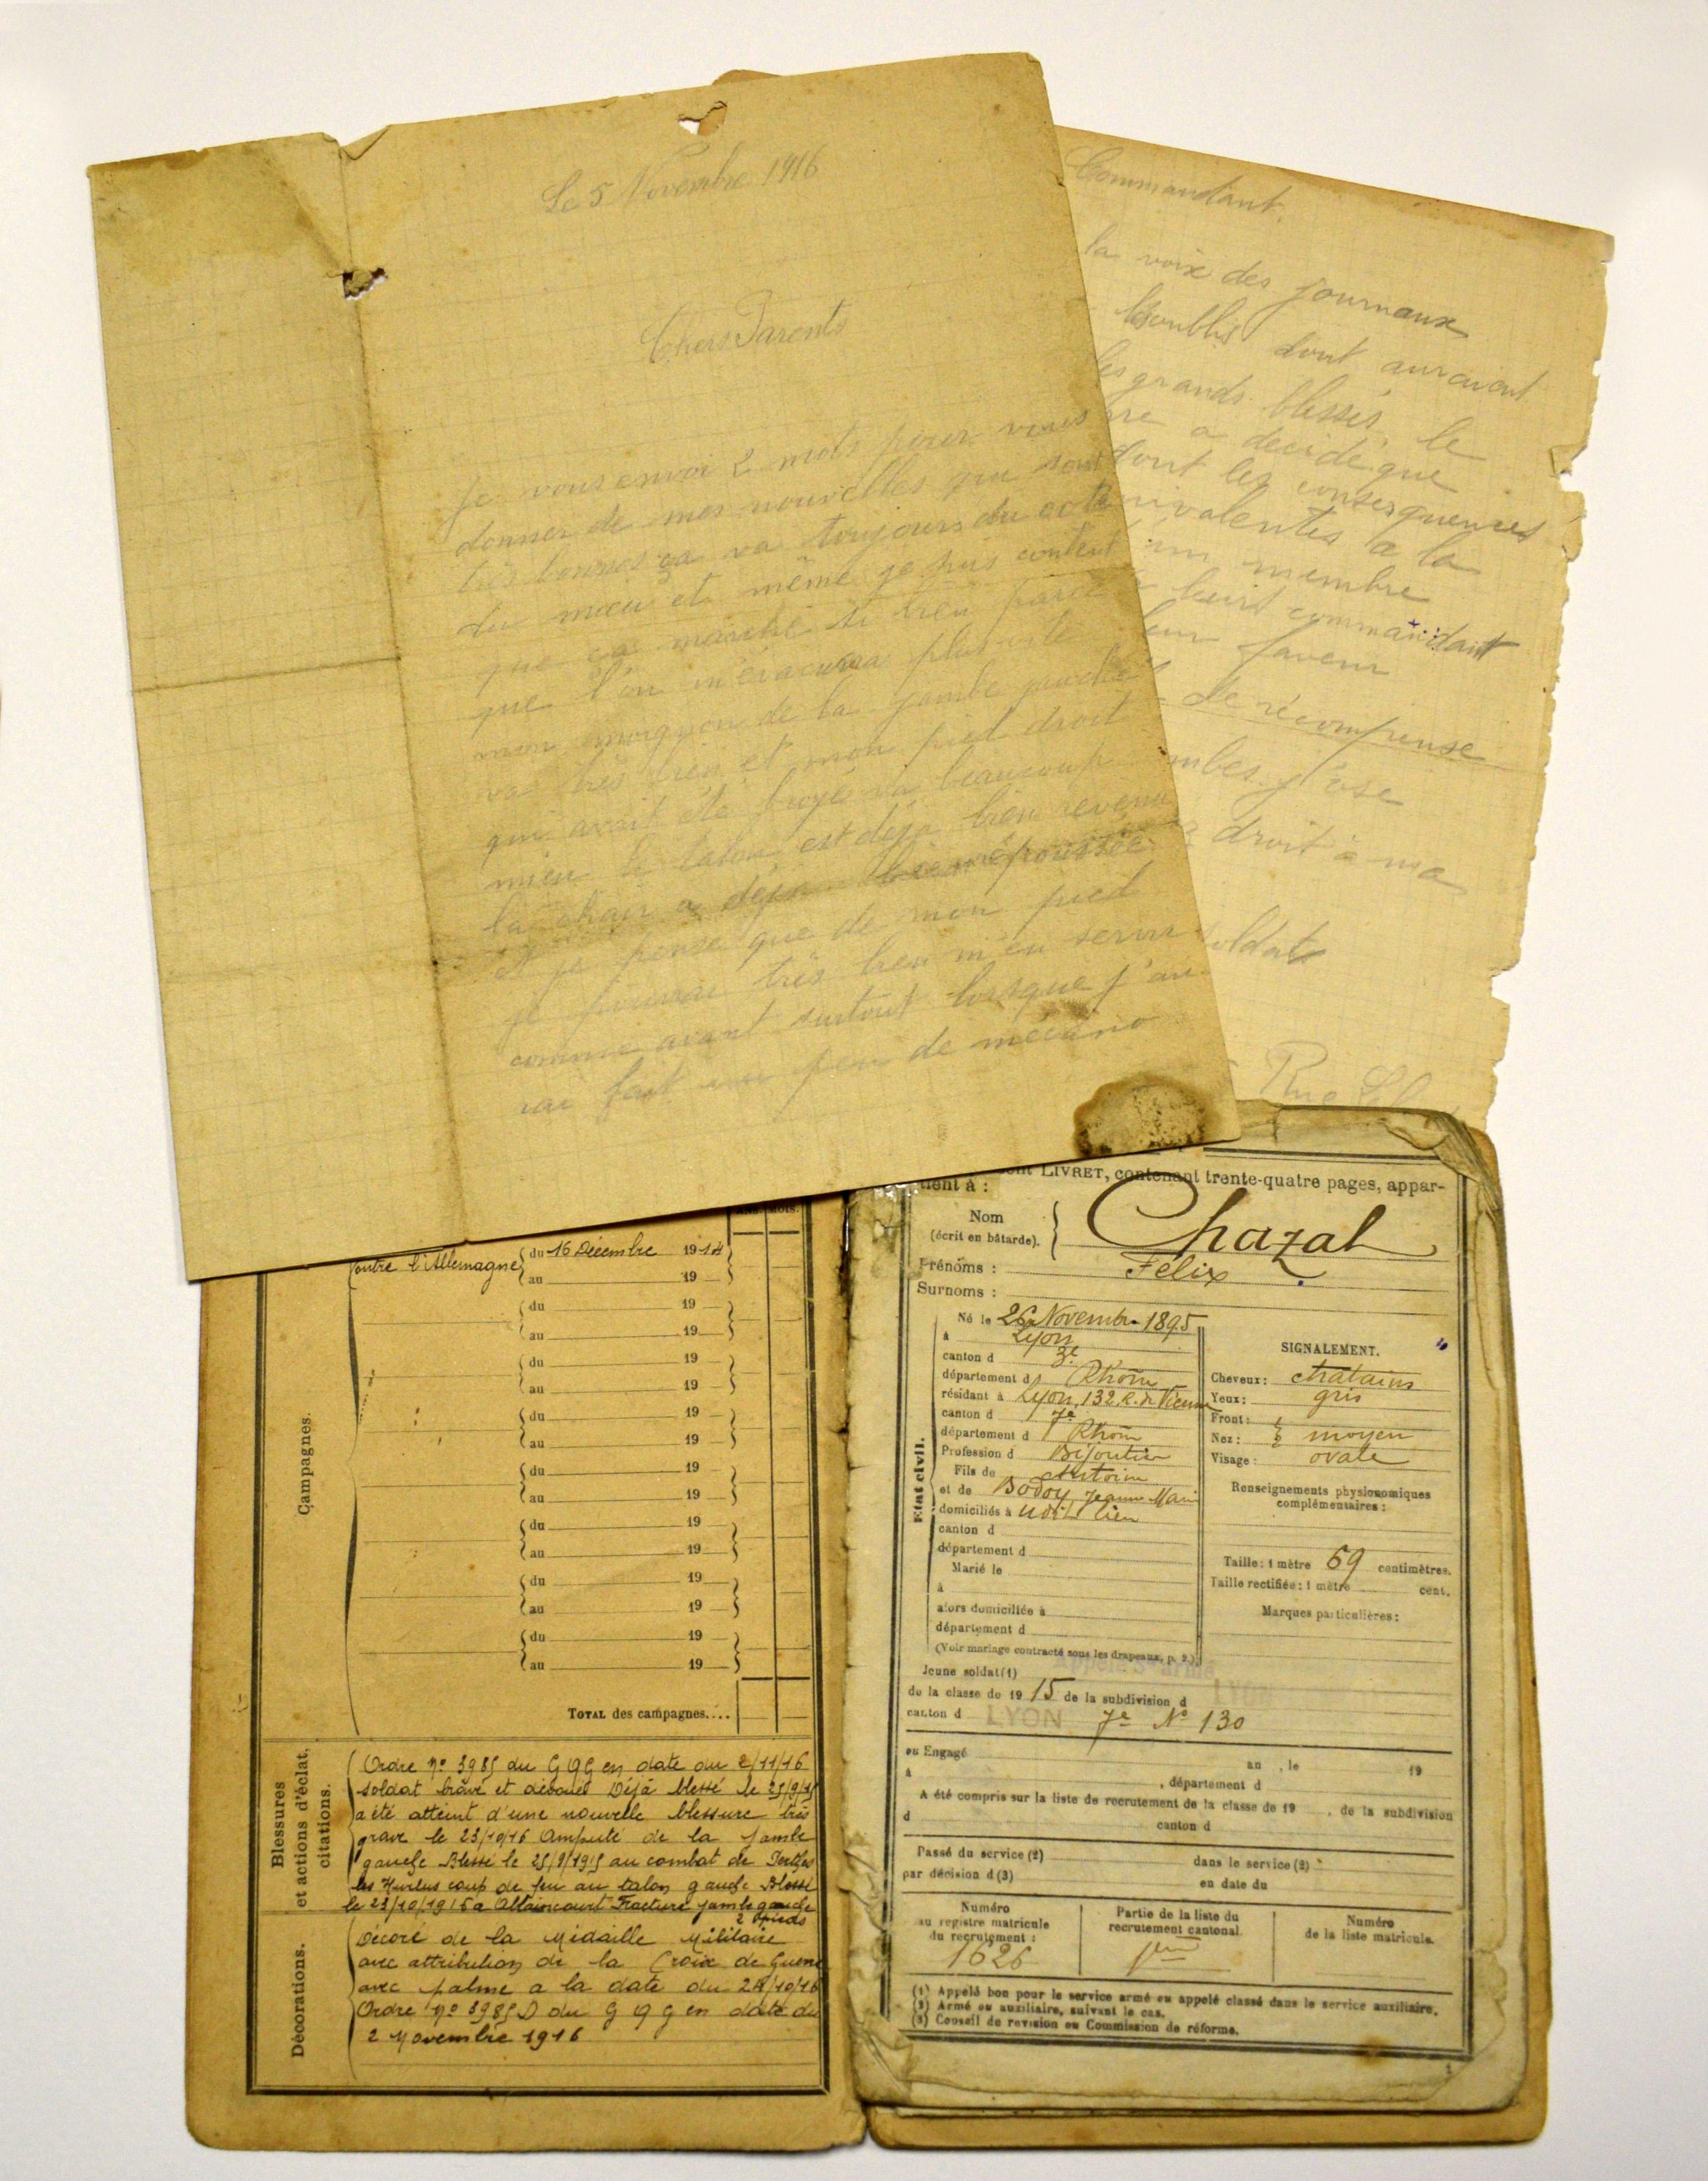 Le 5 Novembre 1916
Chers Parents
Je vous envoi 2 mots pour vous
donner de mes nouvelles qui sont
très bonnes ça va toujours du coté
du mieu et même je suis content
que ça marche si bien parce
que l'on m'évacuera plus vite
mon moignon de la jambe gauche
va très bien et mon pied droit
qui avait été broyé va beaucoup
mieu le talon est déjà bien revenu
la chair a déjà bien repoussée
et je pense que de mon pied
je pourrai très bien m'en servir
comme avant surtout lorsque j'au
rai fait un peu de mécano
Commandant,
la voix des journaux
oublis dont auraient
les grands blessés, le
re a décidé que
dont les consequences
uivalentes a la
un membre
commandant
eur faveur
de récompense
mbes j'ose
droit à ma
soldat
Rue
ent LIVRET, contenant trente-quatre pages, appar-
tient à :
Nom
(écrit en bâtarde).
Chazal
Prénoms : Félix
Surnoms :
Né le 26 Novembre 1895
à Lyon
canton d 3e
département d Rhône
résidant à Lyon, 132 R. de Vienne
canton d 7e
département d Rhône
Profession d Bijoutier
Fils de Antoine
et de Bodoy Jeanne Marie
domiciliés à udit lieu
canton d
département d
Marié le
à
alors domiciliée à
département d
(Voir mariage contracté sous les drapeaux, p. 2.)
État civil.
SIGNALEMENT.
Cheveux : chatains
Yeux : gris
Front :
Nez : moyen
Visage : ovale
Renseignements physionomiques
complémentaires :
Taille : 1 mètre 69 centimètres.
Taille rectifiée : 1 mètre cent.
Marques particulières :
Jeune soldat (1)
de la classe de 1915 de la subdivision d LYON
canton d LYON 7e No 130
ou Engagé
à an , le 19
, département d
A été compris sur la liste de recrutement de la classe de 19 , de la subdivision
d canton d
Passé du service (2) dans le service (2)
par décision d (3) en date du
Numéro
au registre matricule
du recrutement :
1626
Partie de la liste du
recrutement cantonal
1ère
Numéro
de la liste matricule.
(1) Appelé bon pour le service armé ou appelé classé dans le service auxiliaire.
(2) Armé ou auxiliaire, suivant le cas.
(3) Conseil de revision ou Commission de réforme.
1
ANS. MOIS.
Campagnes.
Contre l'Allemagne du 16 Décembre 1914
au 19
du 19
au 19
du 19
au 19
du 19
au 19
du 19
au 19
du 19
au 19
du 19
au 19
du 19
au 19
TOTAL des campagnes....
Blessures
et actions d'éclat.
citations.
Ordre No 3985 du G Q G en date du 2/11/16
soldat brave et dévoué Déjà blessé le 25/9/15
a été atteint d'une nouvelle blessure très
grave le 23/10/16 Amputé de la jambe
gauche Blessé le 25/9/1915 au combat de Perthes
les Hurlus coup de feu au talon gauche Blessé
le 23/10/1916 a Ablaincourt Fracture jambe gauche
2 pieds
Décorations.
Décoré de la Médaille Militaire
avec attribution de la Croix de Guerre
avec palme a la date du 24/10/16
Ordre No 3985 D du G Q G en date du
2 Novembre 1916